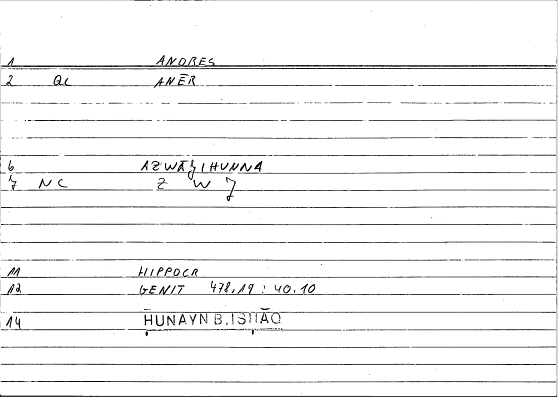 1 ANDRES
2 QL ANĒR
6 AZWĀǦIHUNNA
7 NC Z W Ǧ
11 HIPPOCR
12 GENIT 478.19 : 40.10
14 ḤUNAYN B. ISḤĀQ